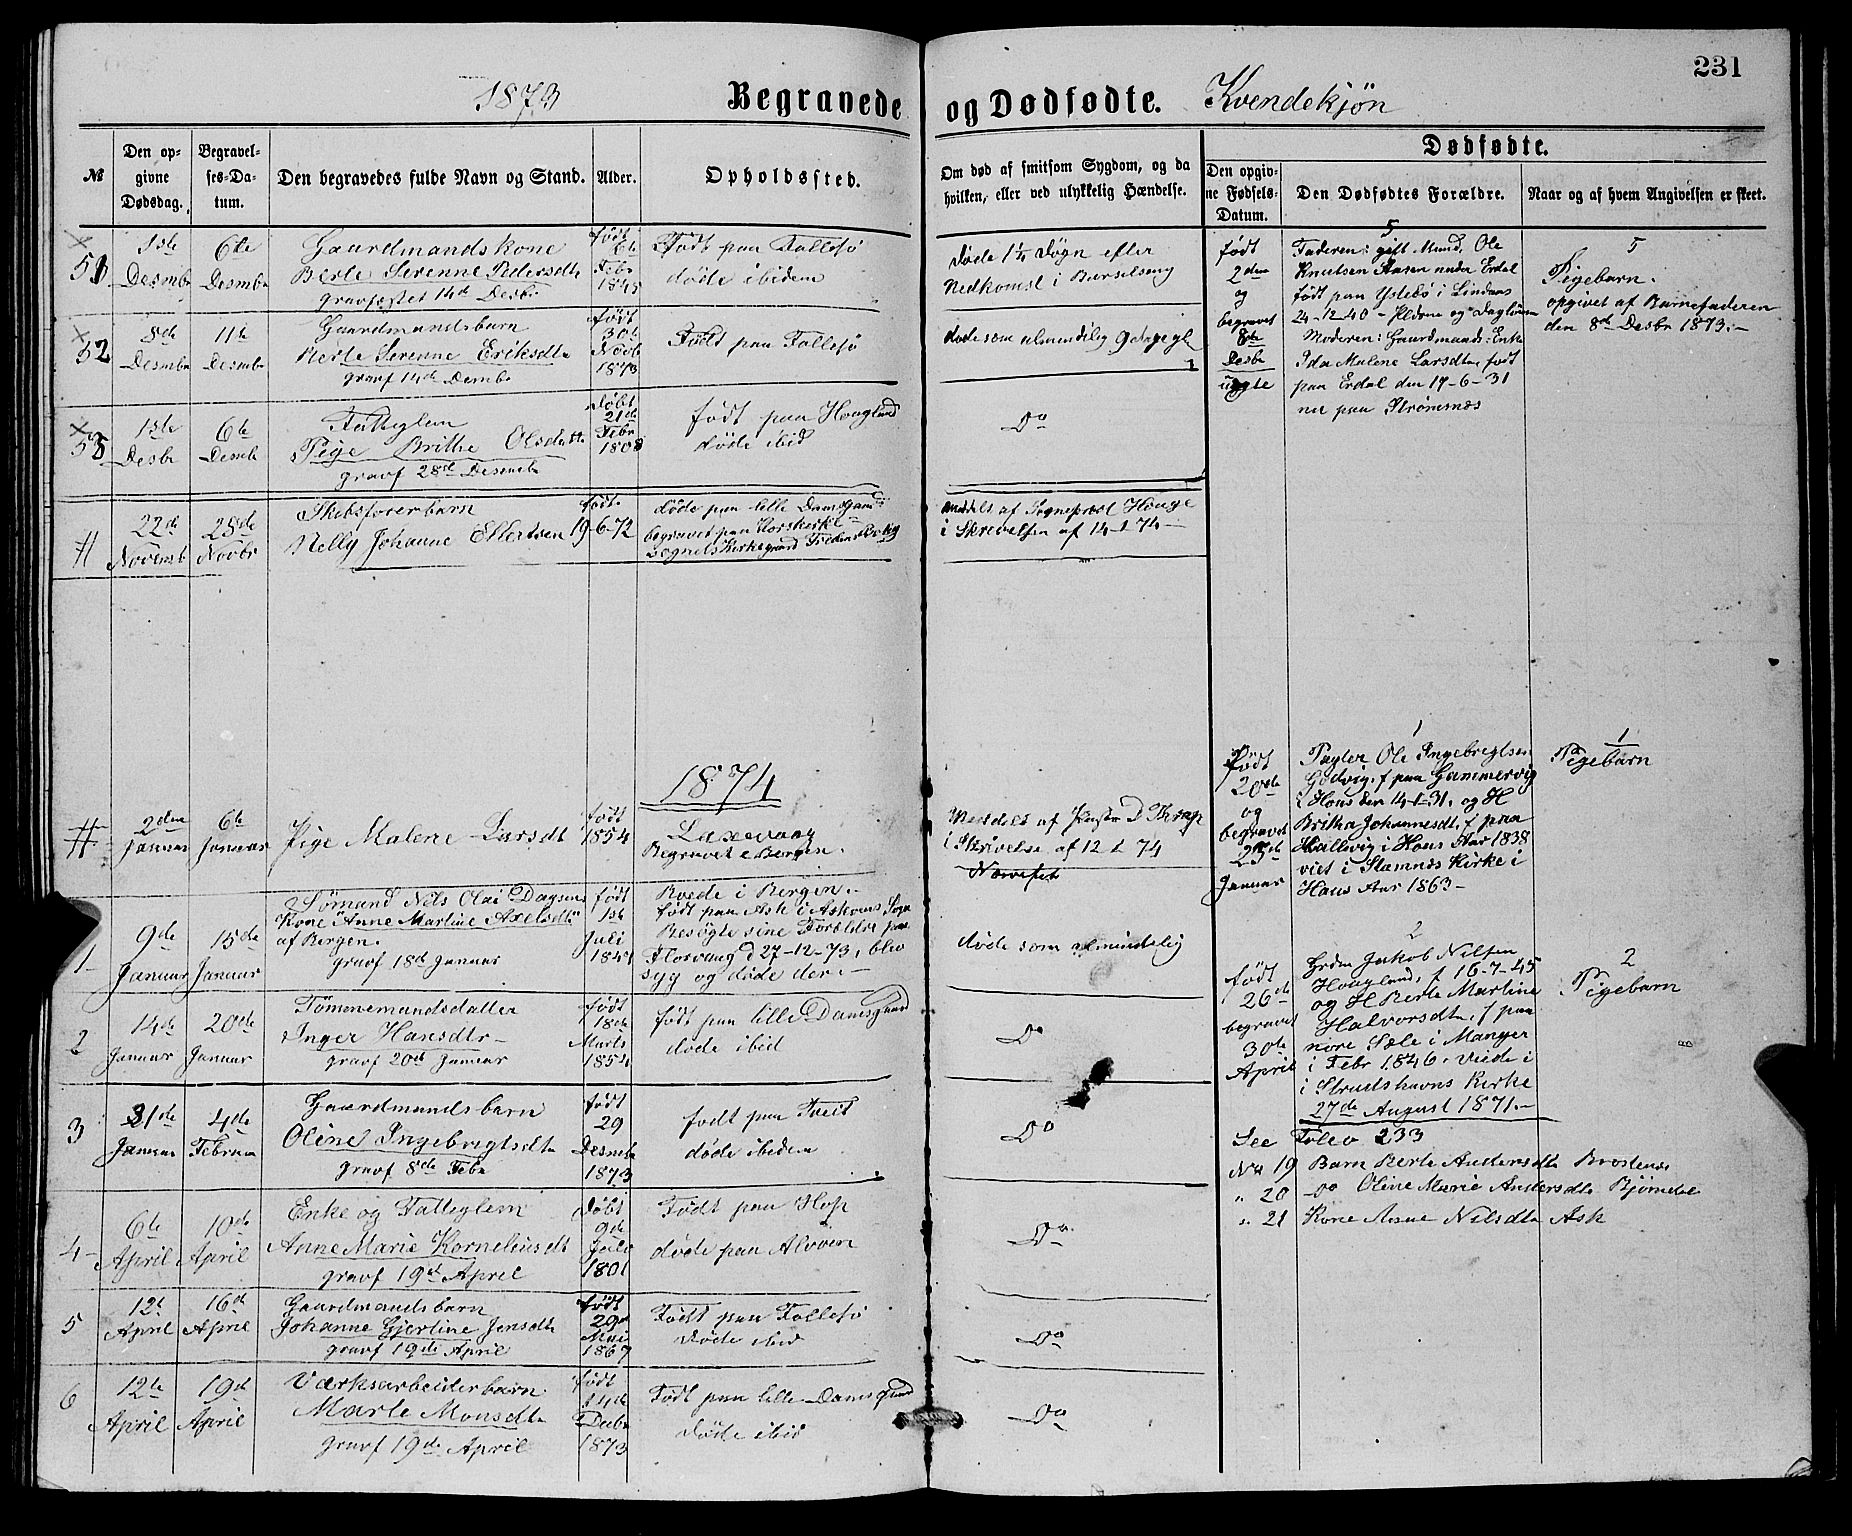 231
1873 Begravede og Dødfødte. Kvendekjøn
№
Den opgivne Dødsdag.
Begravelses-Datum.
Den begravedes fulde Navn og Stand.
Alder.
Opholdssted.
Om død af smitsom Sygdom, og da hvilken, eller ved ulykkelig Hændelse.
Dødfødte.
Den opgivne Fødsels-Datum.
Den Dødfødtes Forældre.
Naar og af hvem Angivelsen er skeet.
51
1ste Desmbr
6te Desmbr
Gaardmandskone
Berte Serenne Pedersdtr
gravfæstet 14d Desbr
født 6te Febr 1845
Født paa Follesø
døde ibidem
døde 1¼ Døgn efter
Nedkomst i Barselseng
52
8de Desmbr
11te Desmbr
Gaardmandsbarn
Berte Serenne Eriksdtr
gravf 14de Dembr
født 30te Novbr 1873
Født paa Follesø
døde som almindelig 9 dage gl
53
1ste Desbr
6te Desmbr
Fattiglem
Pige Brithe Olsdatter
gravf 28de Desmbr
døbt 21de Febr 1808
født paa Hougland
døde ibid
Do
#
22de Novemb
28de Novbr
Skibsførerbarn
Nelly Johanne Ellertsen
født 19-6-72
døde paa lille Damsgaard
begravet paa Korskirke
Sognets Kirkegaard
meddelt af Sognepræst Houge
i Skrivelsen af 14-1-74
5
født
2den
og
begravet
8de
Desbr
uægte
Faderen: gift Mand, Ole
Knutsen Aasen under Erdal
født paa Ystebø i Lindaas
24-12-40 -
Moderen: Gaardmands Enke
Ida Malene Larsdtr, født
paa Erdal den 17-6-31
nu paa Strømsnæs
5
Pigebarn.
opgivet af Barnefaderen
den 8de Desbr 1873.-
1874
#
2den Januar
6te Januar
Pige Malene Larsdt
født 1854
Laxevaag
Begravet i Bergen.
Meddelt af
i Skrivelse af 12 1 74
1
Sømand Nils Olai Dagsens
Kone Anne Martine Axelsdtr
af Bergen.
gravf 18d Januar
9de Januar
15de Januar
født 1ste Juli
Boede i Bergen.
født paa Ask i Askøens Sogn
Besøgte sine Forældre paa
Florvaag d 27-12-73, blev
syg og døde der.-
døde som almindelig
2
14de Januar
20de Januar
Tømmemandsdatter
Inger Hansdtr-
gravf 20de Januar
født 18de Marts 1854
født paa lille Damsgaard
døde ibid
Do
3
31de Januar
4de Februar
Gaardmandsbarn
Oline Ingebregtsdtr
gravf 8de Febr
født 29 Desmbr 1873
født paa Tveit
døde ibidem
Do
4
6te April
10de April
Enke og Fattiglem
Anne Marie Korneliusdt
gravf 19d April
døbt 9de Juli 1801
Født paa Hop
døde paa Alvøen
Do
5
12te April
16d April
Gaardmandsbarn
Johanne Gjertine Jensdtr
gravf 19de April
født 29de Mai 1867
Født paa Follesø
døde ibid
Do
6
12te April
19d April
Værksarbeiderbarn.
Marte Monsdtr
gravf 19de April
født 14de 1873
Født paa lille Damsgaard
døde ibid
Do
1
Født
20de
og
begravet
25de
Januar
Ole Ingebregtsen
Godvig, f paa Gammervig
i Hous den 14-1-31, og H
Britha Johannesdt, f paa
Hallvig i Hous Aar 1838
viet i Stamnes Kirke i
Hous Aar 1863-
1
Pigebarn
2
født
26de
begravet
30te
April
Grdm Jakob Nilsen
Hougland, f 16-7-45
og H Berte Martine
Halvorsdtr, f paa
nore Sæle i Manger
i Febr 1846. Viede i
i Strudshavns Kirke
27de August 1871.-
2
Pigebarn
See Folio 233
Nr 19 Barn Berte Andersdtr
" 20 Do Oline Marie Andersdtr Bjørndal
" 21 Kone Anne Nilsdtr Ask